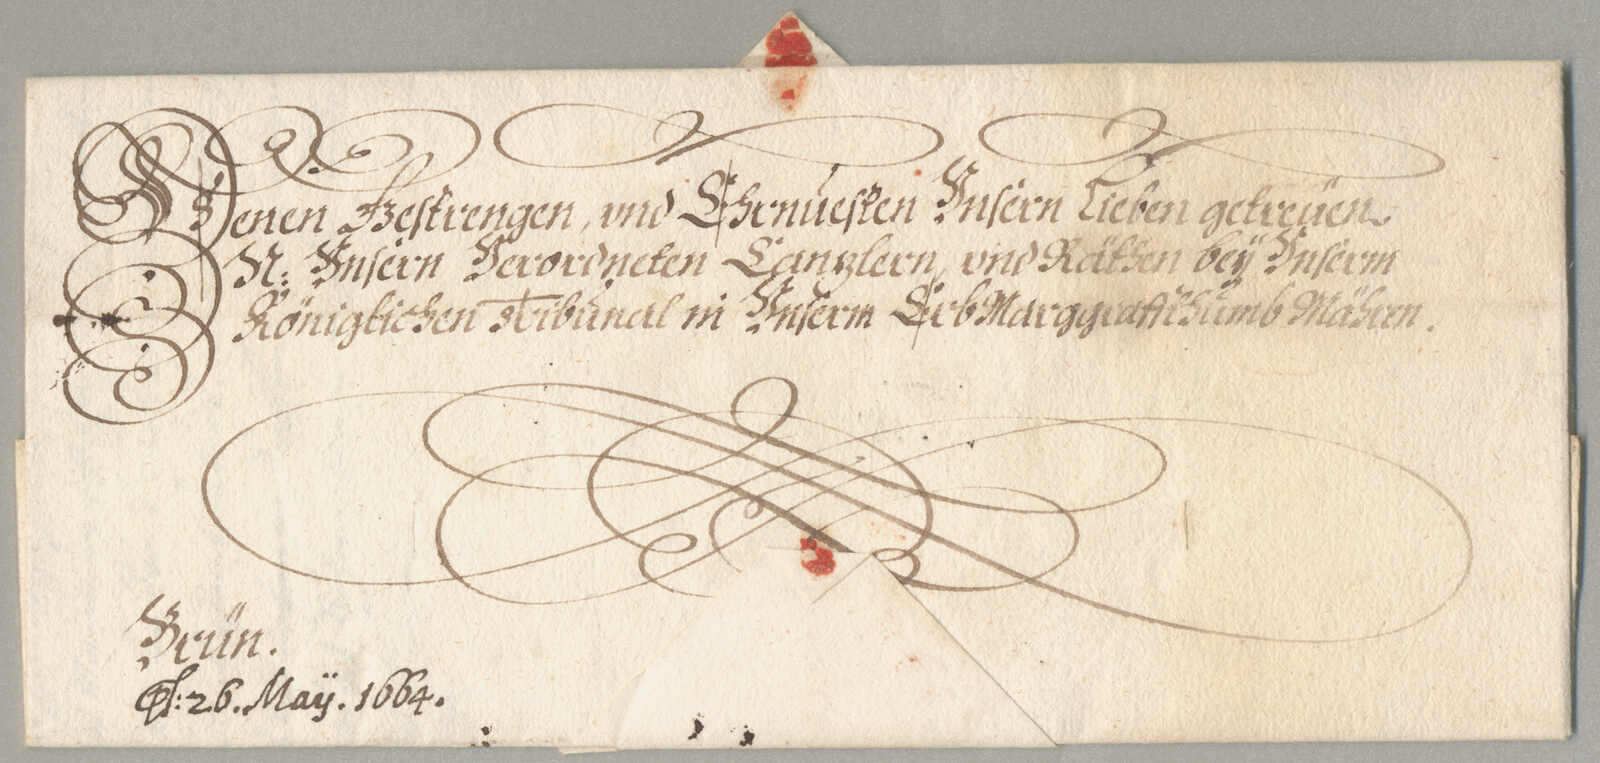 Denen Gestrengen, vnd Ehrnuesten Vnsern Lieben getreüen
N: Vnsern Verordneten Canzlern, vnd Räthen bey Vnserm
Königlichen Tribunal in Vnserm Erb Marggraffthumb Mähren.
Brün.
Ps: 26. Maÿ. 1664.